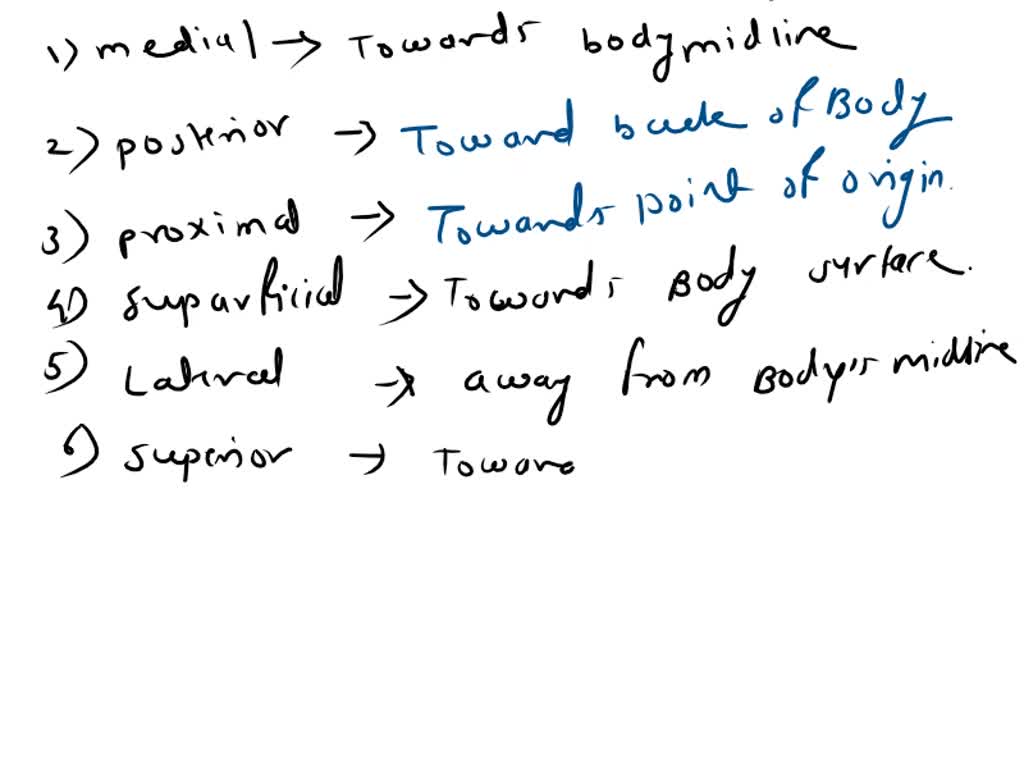 1) medial → Towards body midline
2) posterior → Toward back of Body
3) proximal → Towards point of origin.
4) suparficial → Towards Body surface.
5) Lateral → away from Body's midline
6) superior → Toward